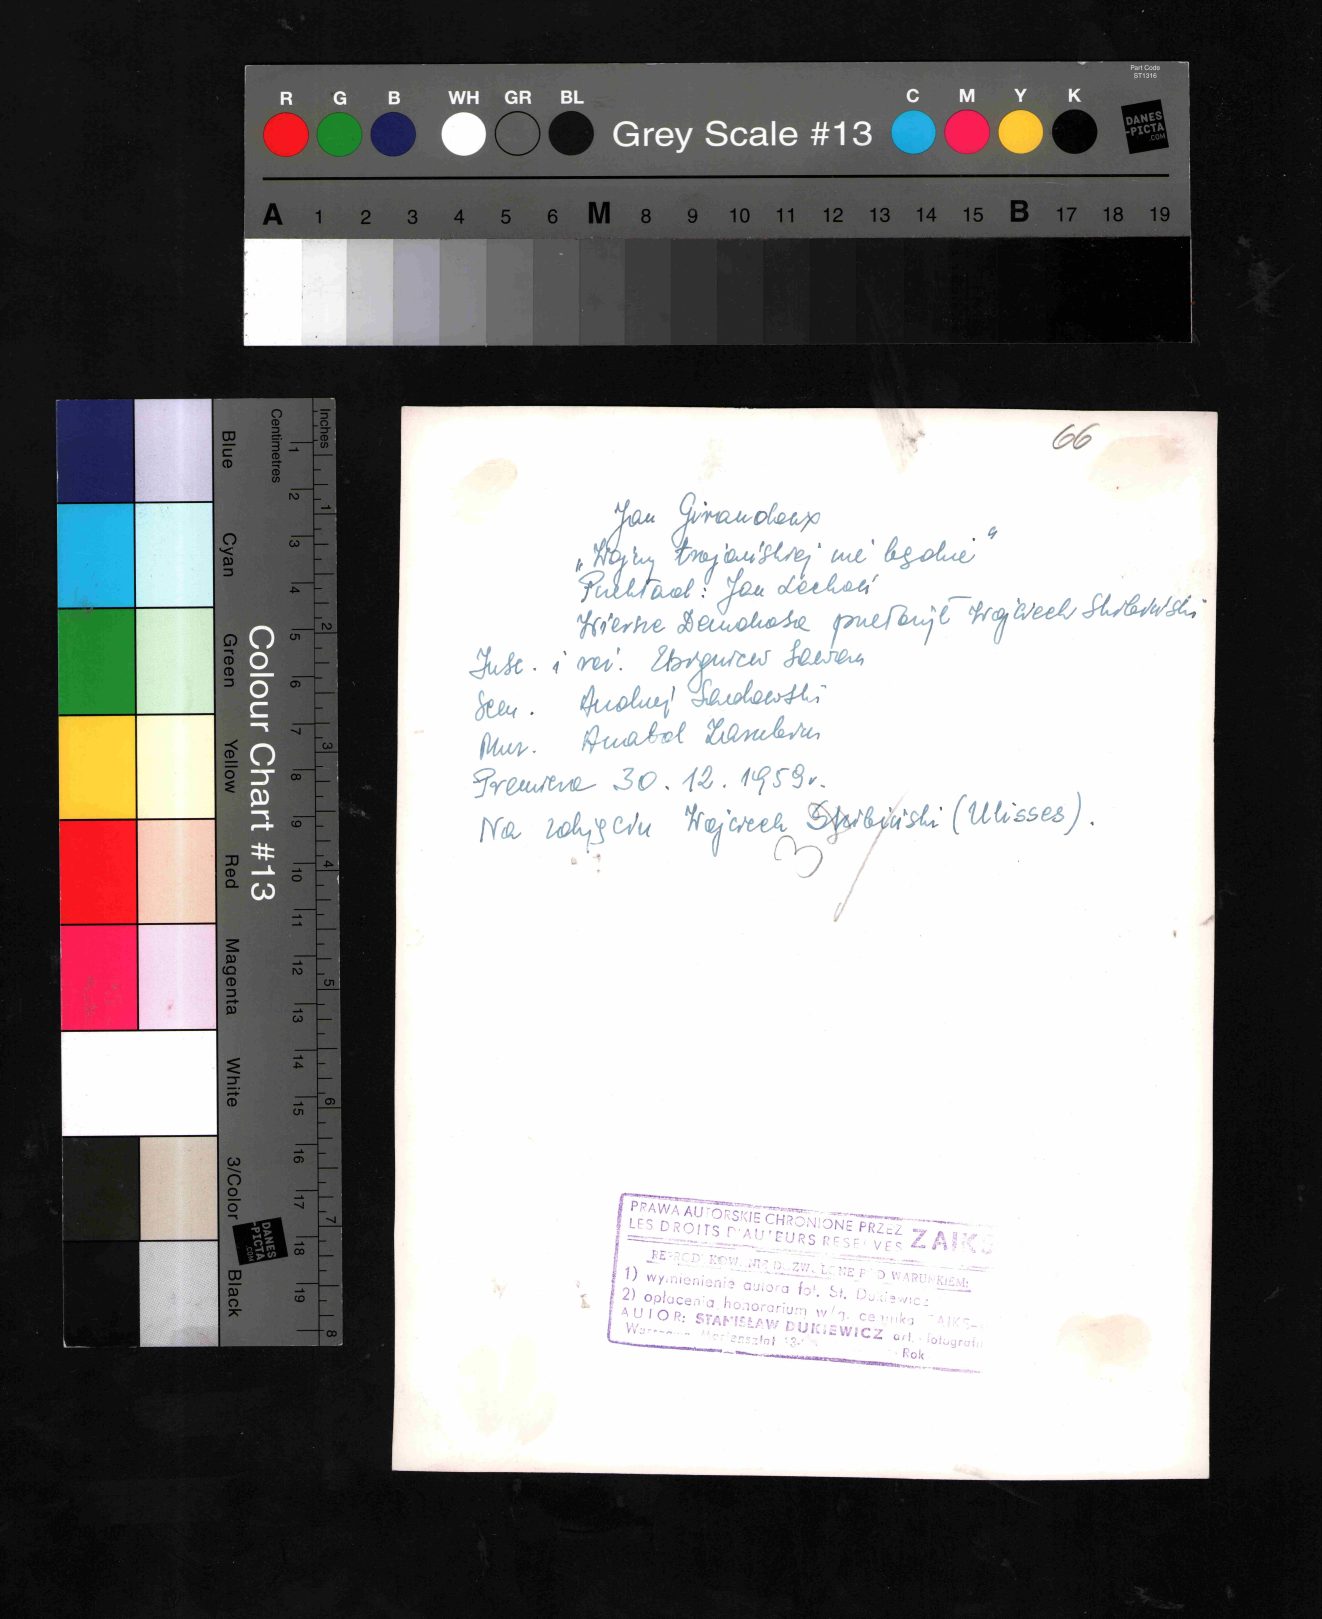 Part Code
ST1316
R G B WH GR BL Grey Scale #13 C M Y K
DANES
-PICTA
.COM
A 1 2 3 4 5 6 M 8 9 10 11 12 13 14 15 B 17 18 19
Colour Chart #13
Blue
Cyan
Green
Yellow
Red
Magenta
White
3/Color
Black
Centimetres
1 2 3 4 5 6 7 8 9 10 11 12 13 14 15 16 17 18 19
Inches
1 2 3 4 5 6 7 8
DANES
-PICTA
.COM
66
Jan Giraudoux
„Wojny trojańskiej nie będzie”
Przekład: Jan Lechoń
Wiersze Demokosa przełożył Wojciech
Insc. i reż. Zbigniew Sawan
Scen. Andrzej Sadowski
Muz. Anatol Zarubin
Premiera 30.12.1959r.
Na zdjęciu Wojciech (Ulisses).
3
PRAWA AUTORSKIE CHRONIONE PRZEZ ZAIKS
LES DROITS D'AUTEURS RESERVES
WARUNKIEM:
1) wymienienie autora fot. St. Dukiewicz
2) opłacenia honorarium wg. cennika ZAIKS
AUTOR: STANISŁAW DUKIEWICZ art. fotografik
Warszawa Mariensztat
Rok